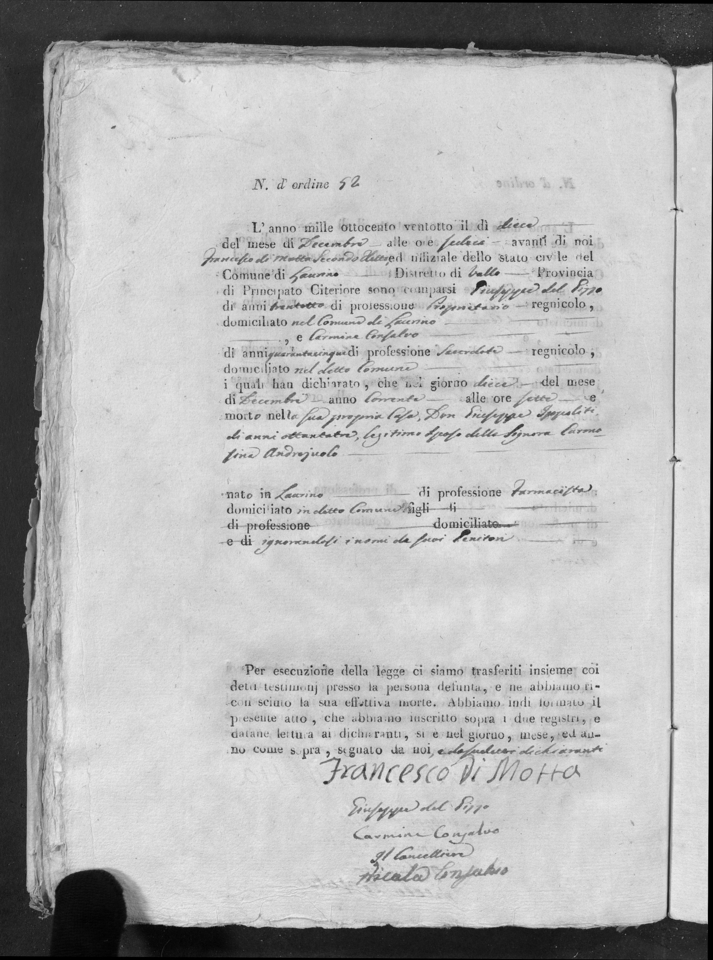 N. d'ordine 52
L'anno mille ottocento ventotto il dì dieci
del mese di Decembre alle ore sedeci avanti di noi
Francesco di Motta Secondo Eletto, ed ufiziale dello stato civile del
Comune di Laurino Distretto di Vallo Provincia
di Principato Citeriore sono comparsi Giuseppe del Pizzo
di anni trentotto di professione Proprietario regnicolo,
domiciliato nel Comune di Laurino
, e Carmine Consalvo
di anni quarantacinque di professione Sacerdote regnicolo,
domiciliato nel detto Comune
i quali han dichiarato, che nel giorno dieci del mese
di Decembre anno corrente alle ore sette e
morto nella sua propria Casa, Don Giuseppe Ippoliti
di anni ottantatre, legitimo sposo della Signora Carmo-
sina Andrejuolo
nato in Laurino di professione Farmacista
domiciliato in detto Comune figli di
di professione domiciliato
e di ignorandosi i nomi de suoi Genitori
Per esecuzione della legge ci siamo trasferiti insieme coi
detti testimonj presso la persona defunta, e ne abbiamo ri-
con sciuto la sua effettiva morte. Abbiamo indi formato il
presente atto, che abbiamo inscritto sopra i due registri, e
datane lettura ai dicharanti, si è nel giorno, mese, ed an-
no come sopra, segnato da noi e da sudetti dichiaranti
Francesco Di Motta
Giuseppe del Pizzo
Carmine Consalvo
Il Cancelliere
Nicola Consalvo